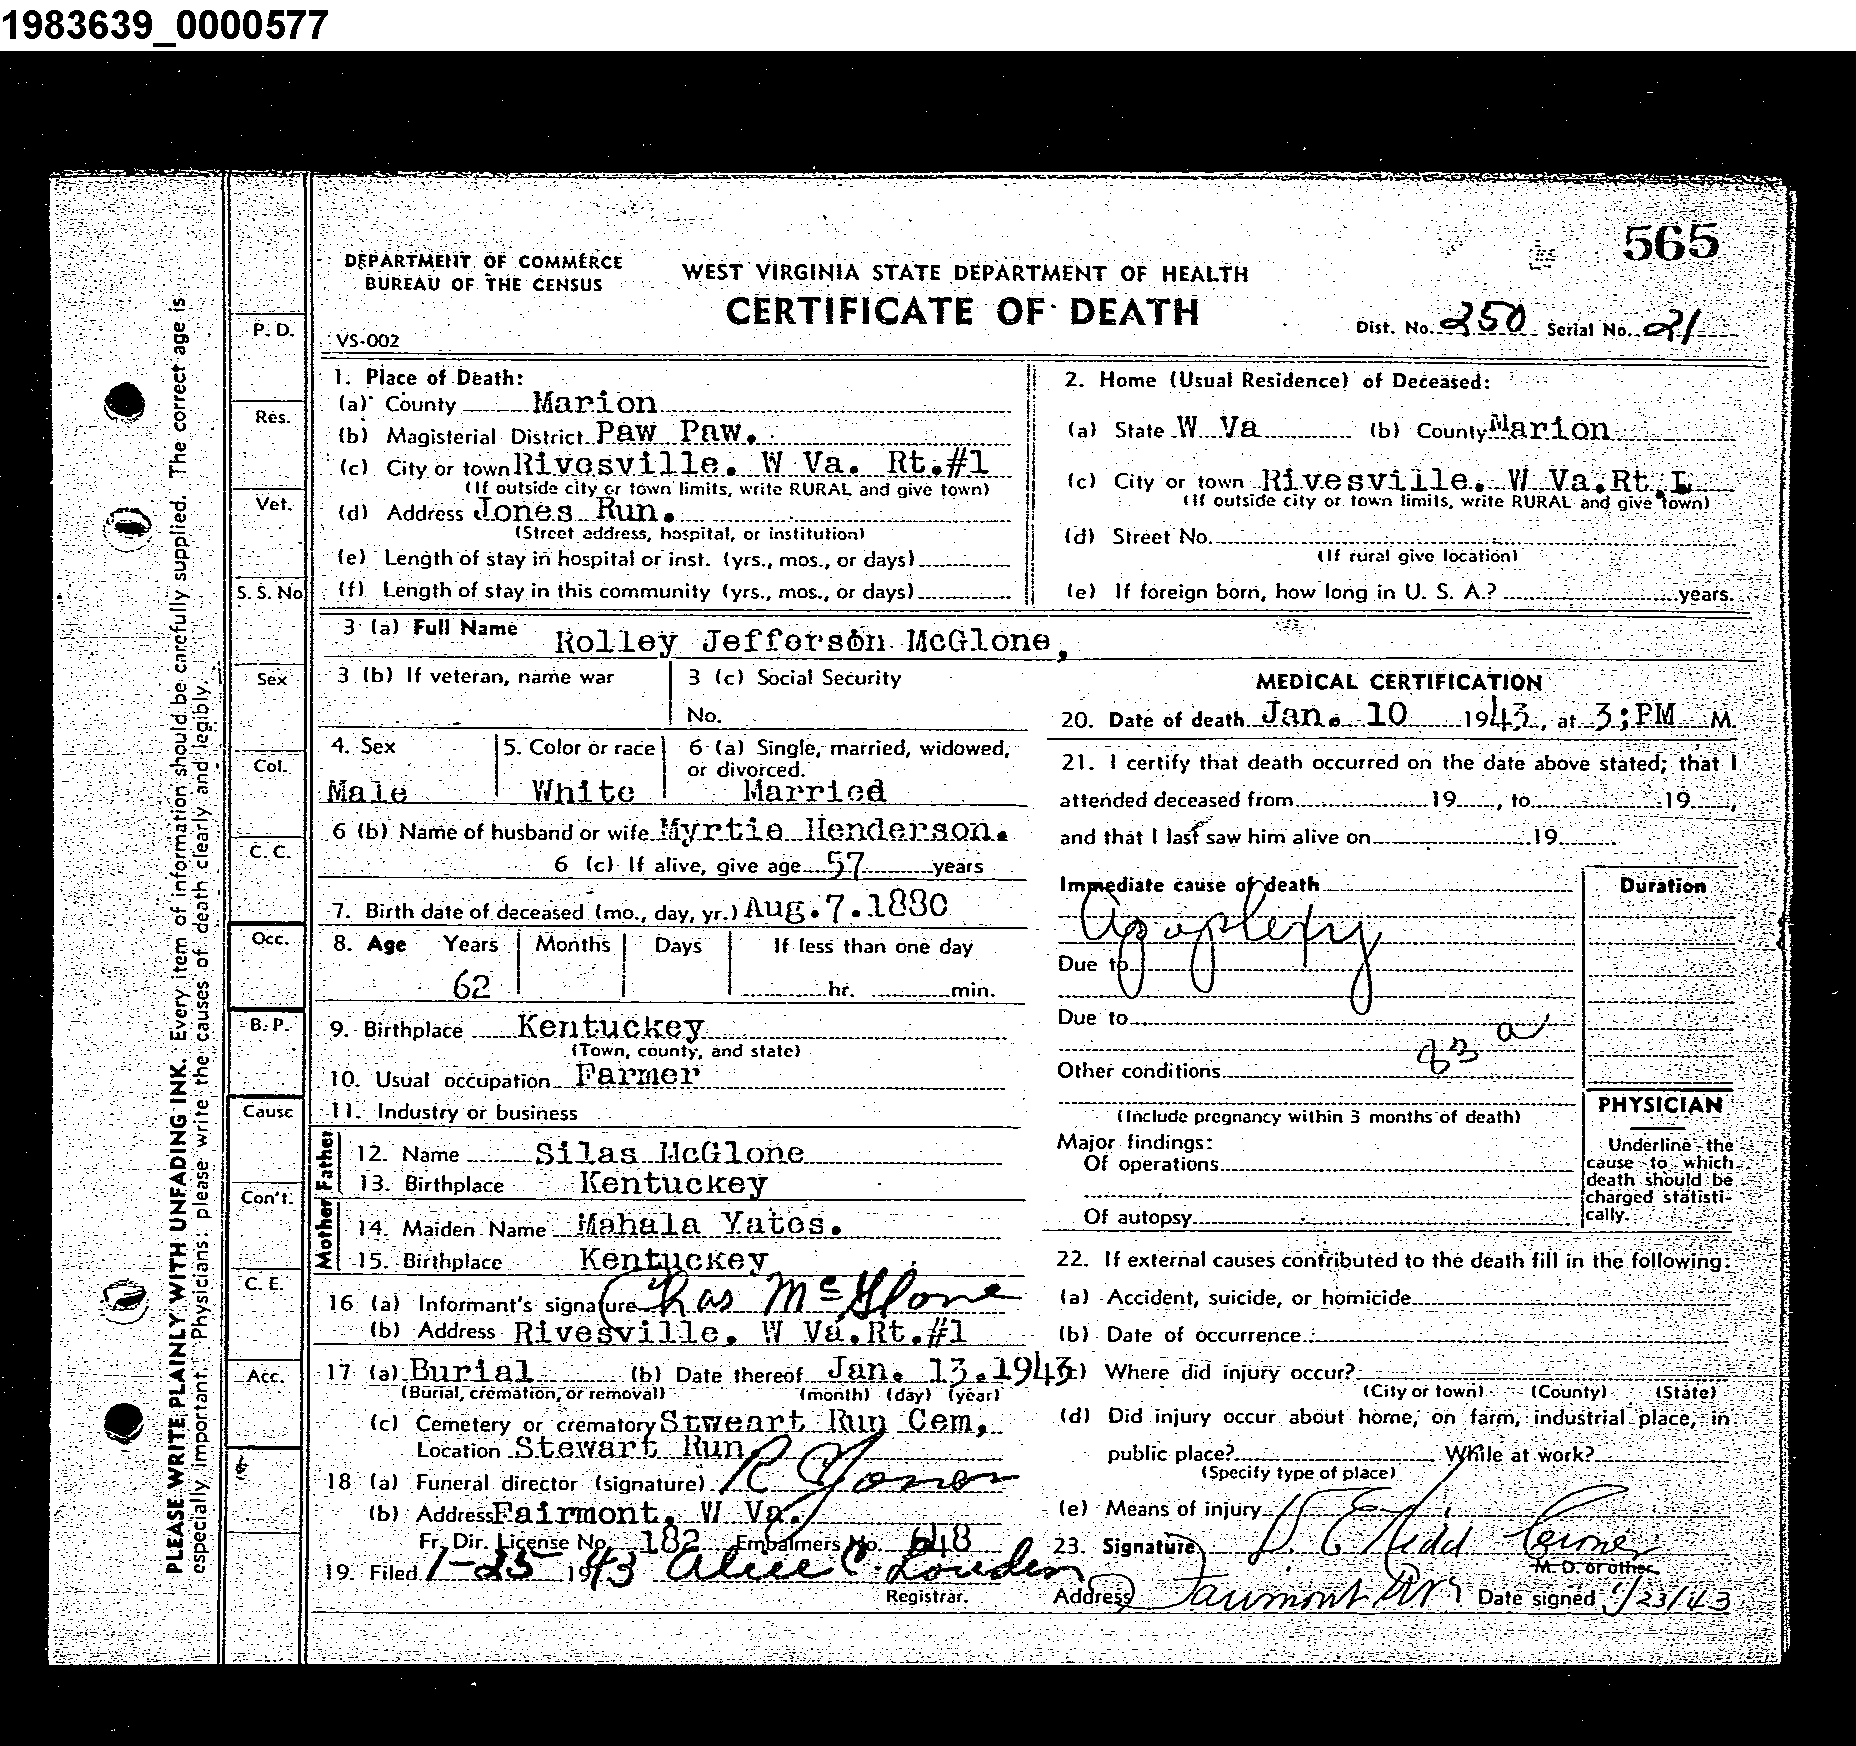 1983639_0000577
565
DEPARTMENT OF COMMERCE
BUREAU OF THE CENSUS
WEST VIRGINIA STATE DEPARTMENT OF HEALTH
CERTIFICATE OF DEATH
VS-002
Dist. No. 250 Serial No. 21
PLEASE WRITE PLAINLY WITH UNFADING INK. Every item of information should be carefully supplied. The correct age is
especially important. Physicians: please write the causes of death clearly and legibly.
P. D.
Res.
Vet.
S. S. No
Sex
Col.
C. C.
Occ.
B. P.
Cause
Con't.
C. E.
Acc.
1. Place of Death:
(a) County Marion
(b) Magisterial District Paw Paw.
(c) City or town Rivesville. W Va. Rt.#1
(If outside city or town limits, write RURAL and give town)
(d) Address Jones Run.
(Street address, hospital, or institution)
(e) Length of stay in hospital or inst. (yrs., mos., or days)
(f) Length of stay in this community (yrs., mos., or days)
2. Home (Usual Residence) of Deceased:
(a) State W Va (b) County Marion
(c) City or town Rivesville. W Va.Rt.L
(If outside city or town limits, write RURAL and give town)
(d) Street No.
(If rural give location)
(e) If foreign born, how long in U. S. A.? years.
3 (a) Full Name Rolley Jefferson McGlone,
3 (b) If veteran, name war
3 (c) Social Security
No.
4. Sex
Male
5. Color or race
White
6 (a) Single, married, widowed,
or divorced.
Married
6 (b) Name of husband or wife Myrtie Henderson.
6 (c) If alive, give age 57 years
7. Birth date of deceased (mo., day, yr.) Aug.7.1880
8. Age Years Months Days If less than one day
62 hr. min.
9. Birthplace Kentuckey
(Town, county, and state)
10. Usual occupation Farmer
11. Industry or business
Father
12. Name Silas McGlone
13. Birthplace Kentuckey
Mother
14. Maiden Name Mahala Yates.
15. Birthplace Kentuckey
16 (a) Informant's signature Chas McGlone
(b) Address Rivesville. W Va.Rt.#1
17 (a) Burial (b) Date thereof Jan. 13.1943
(Burial, cremation, or removal) (month) (day) (year)
(c) Cemetery or crematory Stweart Run Cem,
Location Stewart Run
18 (a) Funeral director (signature) R C Jones
(b) Address Fairmont, W Va.
Fr. Dir. License No. 182 Embalmers No. 648
19. Filed 1-25 1943 Alice C. Louden
Registrar.
MEDICAL CERTIFICATION
20. Date of death Jan. 10 1943, at 3;PM M
21. I certify that death occurred on the date above stated; that I
attended deceased from 19 , to 19 ,
and that I last saw him alive on 19
Immediate cause of death
Duration
Apoplexy
Due to
Due to
83 a
Other conditions
(Include pregnancy within 3 months of death)
Major findings:
Of operations
Of autopsy
PHYSICIAN
Underline the
cause to which
death should be
charged statisti-
cally.
22. If external causes contributed to the death fill in the following:
(a) Accident, suicide, or homicide
(b) Date of occurrence
(c) Where did injury occur?
(City or town) (County) (State)
(d) Did injury occur about home, on farm, industrial place, in
public place? While at work?
(Specify type of place)
(e) Means of injury
23. Signature E Kidd Coroner
M. D. or other
Address Fairmont W Va Date signed 1/23/43